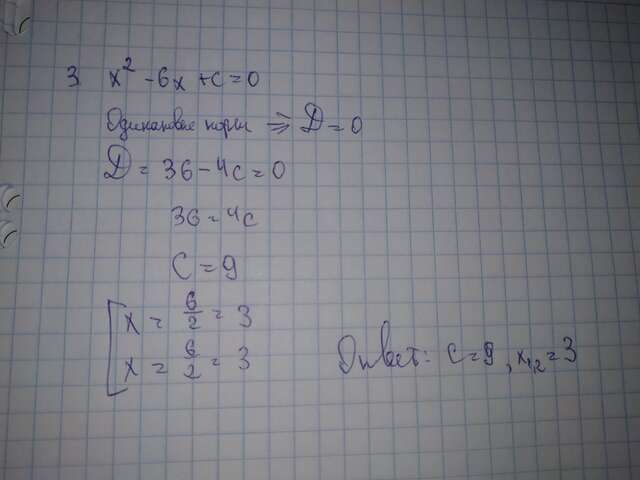 3. x² - 6x + c = 0
Одинаковые корни ⇒ D = 0
D = 36 - 4c = 0
36 = 4c
c = 9
[ x = 6/2 = 3
x = 6/2 = 3
Ответ: c = 9, x₁,₂ = 3